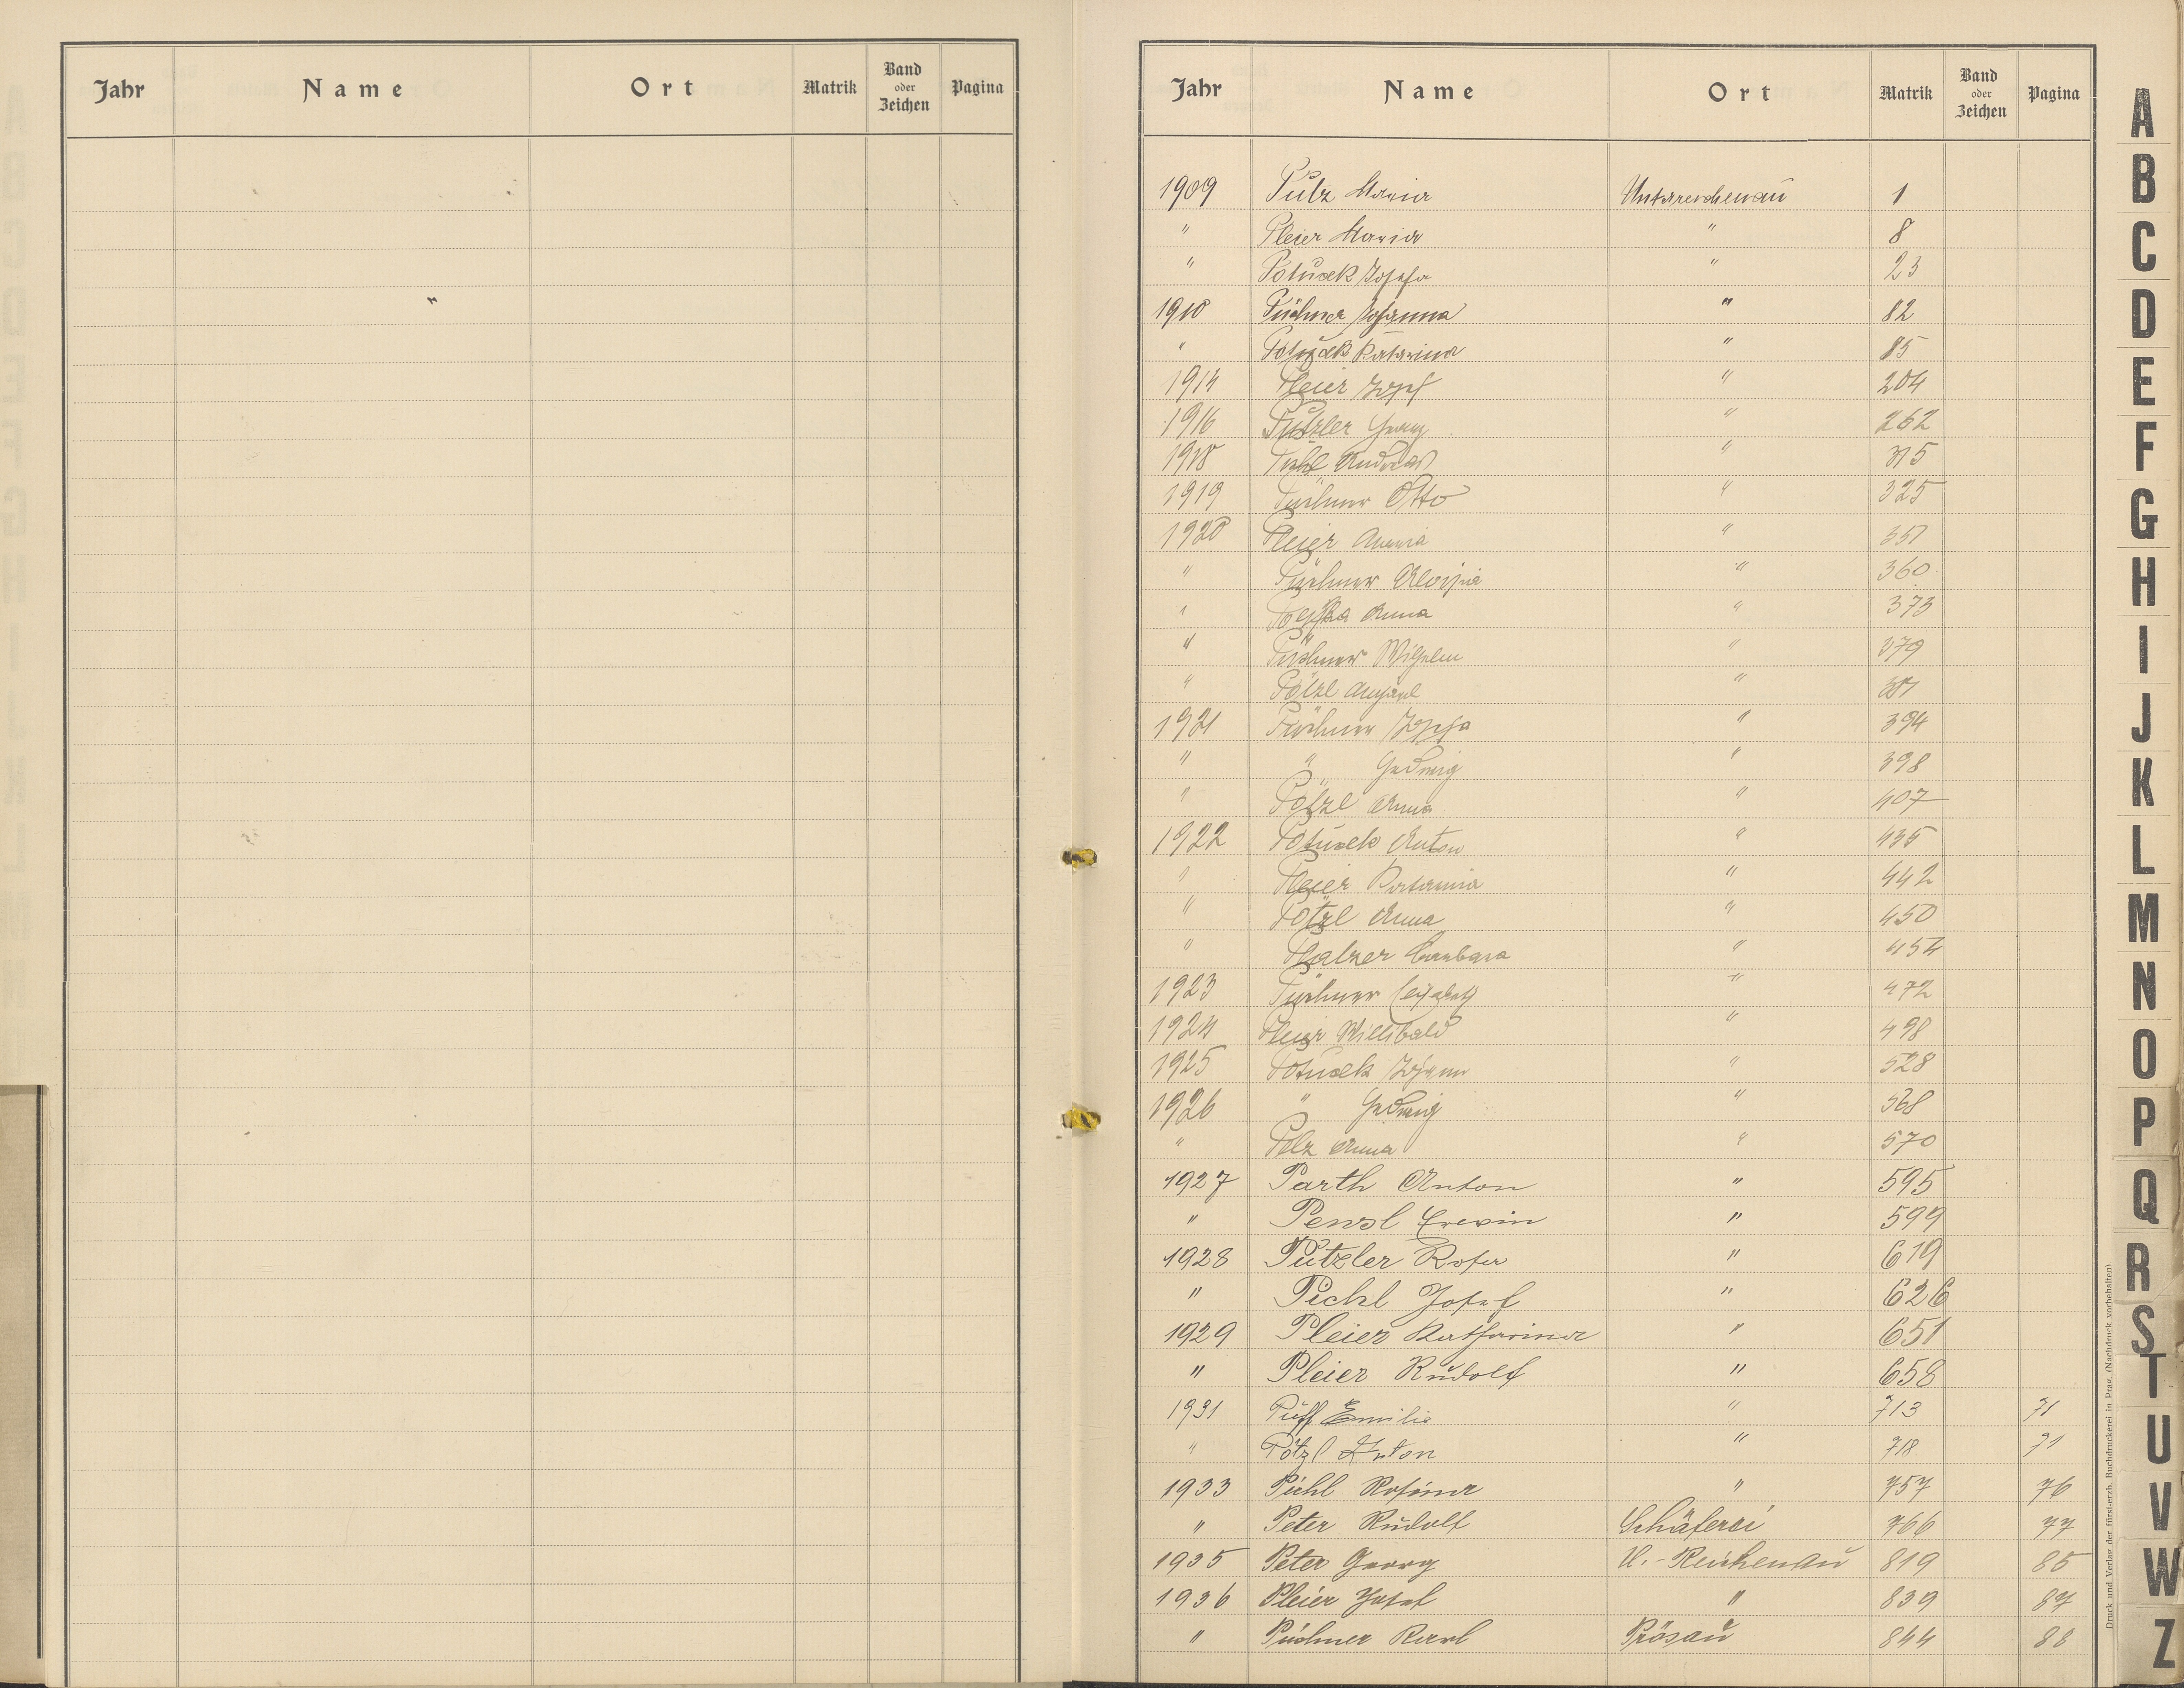 Jahr Name Ort Matrik Band oder Zeichen Pagina
"
Jahr Name Ort Matrik Band oder Zeichen Pagina
1909 Pülz Maria Unterreichenau 1
" Pleier Maria " 8
" Potuček Josefa " 23
1910 Püchner Johanna " 82
" Potuček Katarina " 85
1914 Pleier Josef " 204
1916 Pützler Georg " 262
1918 Andreas " 315
1919 Püchner Otto " 325
1920 Pleier " 351
" Püchner Aloisia " 360
" Anna " 373
" Püchner Wilhelm " 379
" Pötzl "
1921 Püchner Josefa " 394
" " Hedwig " 398
" Pötzl Anna " 407
1922 Potuček Anton " 435
" Pleier " 442
" Pötzl Anna " 450
" Barbara " 454
1923 Püchner " 472
1924 Pleier Willibald " 498
1925 Potuček Johann " 528
1926 " Hedwig " 568
" Pelz Anna " 570
1927 Parth Anton " 595
" Penzl Erwin " 599
1928 Pützler Rosa " 619
" Pichl Josef " 626
1929 Pleier Katharina " 651
" Pleier Rudolf " 658
1931 Puff Emilie " 713 71
" Pötzl Anton " 718 71
1933 Pichl Rosina " 757 76
" Peter Rudolf Schäferei 766 77
1935 Peter Georg U.-Reichenau 819 85
1936 Pleier Josef " 839 87
" Püchner Karl Prösau 844 88
A
B
C
D
E
F
G
H
I
J
K
L
M
N
O
P
Q
R
S
T
U
V
W
Z
Druck und Verlag der fürst-erzb. Buchdruckerei in Prag. (Nachdruck vorbehalten)